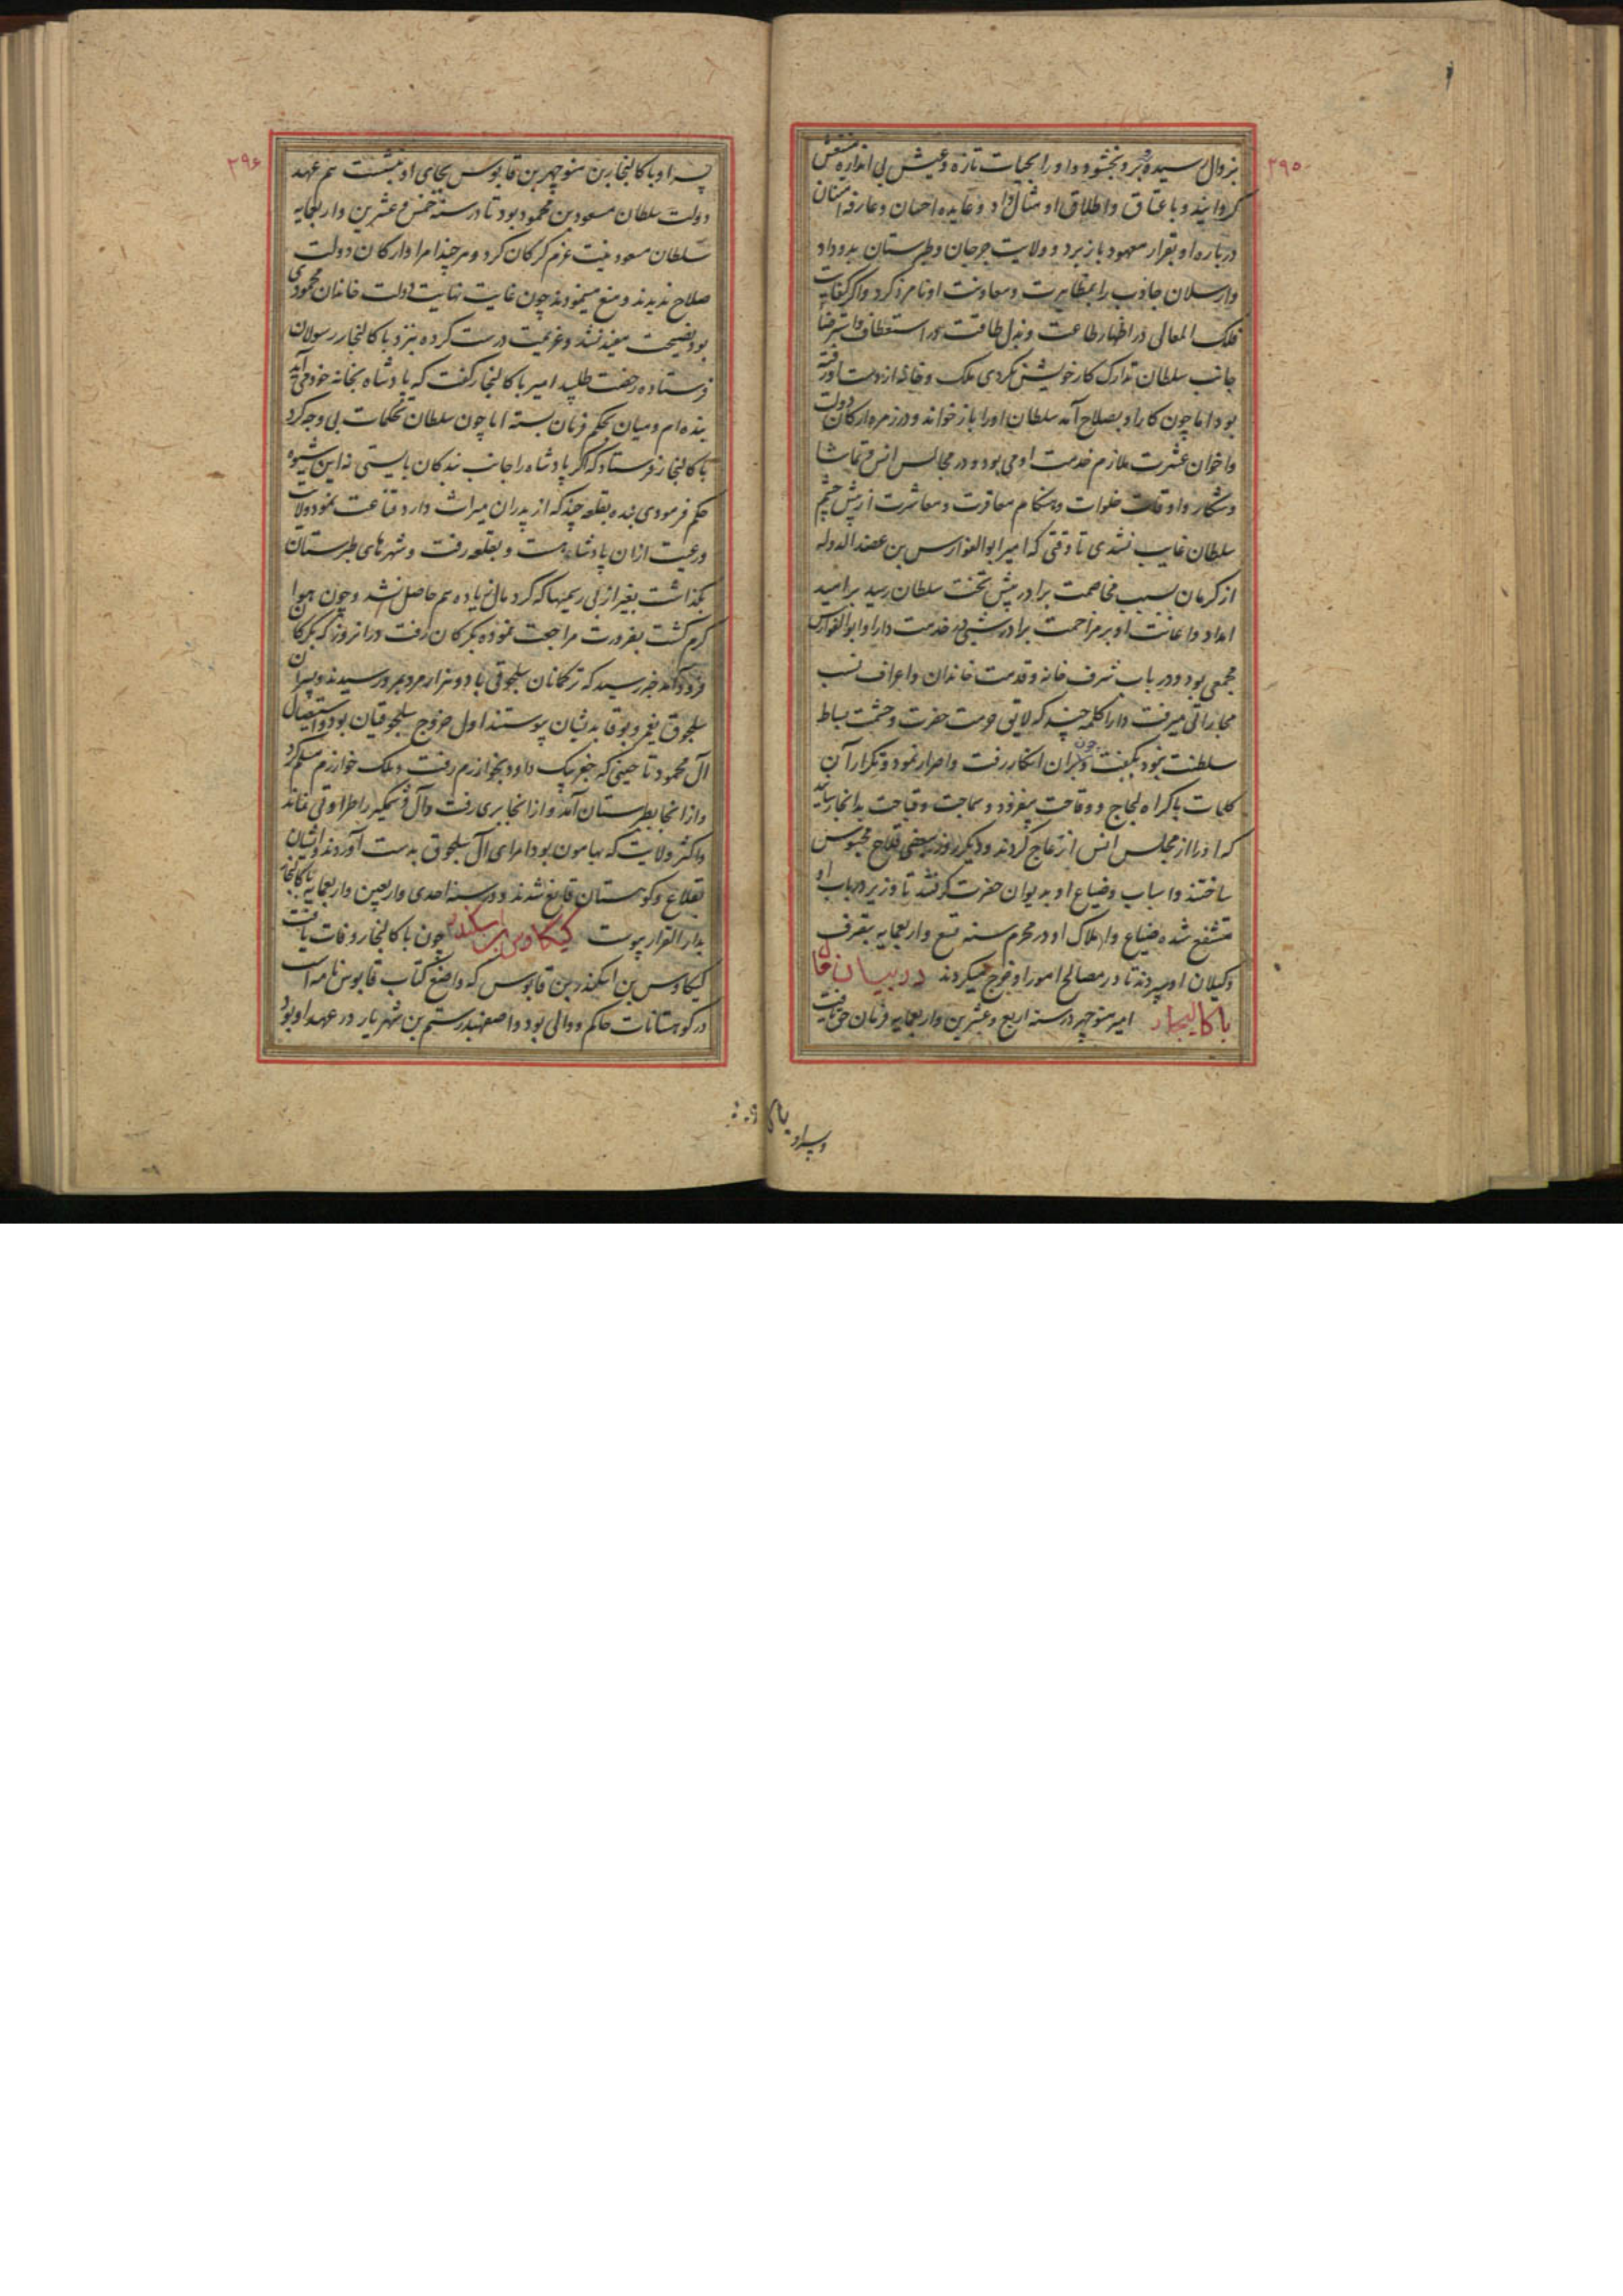 ۲۹۵
بزوال رسیده و بر و نبخشود و او را بحیات تازه و عیش بی اندازه منتعش
کردانیند و باعتاق و اطلاق او مثال داد و عایده احسان و عارفه امتنان
درباره او بقرار معهود باز برد و ولایت جرجان و طبرستان بدو داد
وارسلان جاذب را بمظاهرت و معاونت او نامزد کرد و اکر کفایت
فلک المعالی در اظهار طاعت و بذل طاقت در استعطاف و استرضا
جانب سلطان تدارک کار خویش نکردی ملک و خانه از دست او رفته
بود اما چون کار او بصلاح آمد سلطان او را باز خواند و در زمره ارکان دولت
و اخوان عشرت ملازم خدمت او می بود و در مجالس انس و تماشا
و شکار و اوقات خلوات و هنکام معاقرت و معاشرت از پیش چشم
سلطان غایب نشدی تا وقتی که امیر ابوالفوارس بن عضدالدوله
از کرمان بسبب مخاصمت برادر پیش تخت سلطان رسید بر امید
امداد و اعانت او بر مزاحمت برادر شبی در خدمت دارا و ابوالفوارس
مجمعی بود و در باب شرف خانه و قدمت خاندان و اعراف نسب
مجاراتی میرفت دارا کلمه چند که لایق حرمت حضرت و حشمت بساط
سلطنت نبود بکفت و چون بران انکار رفت و اصرار نمود و تکرار آن
کلمات باکراه لجاج و وقاحت بیفزود و سماجت و قباحت بدانجا رسانید
که او را از مجلس انس ازعاج کردند و دیکر روز ببعضی قلاع محبوس
ساختند و اسباب و ضیاع او بدیوان حضرت کرفتند تا وزیر در باب او
متشفع شده ضیاع و املاک او در محرم سنه تسع و اربعمایه بتصرف
وکیلان او سپردند تا در مصالح امور او خرج میکردند در بیان
باکالیجار امیر منوچهر در سنه اربع و عشرین و اربعمایه فرمان حق یافت
۲۹۶
پسر او باکالنجار بن منوچهر بن قابوس بجای او بنشست هم عهد
دولت سلطان مسعود بن محمود بود تا در سنه خمس و عشرین و اربعمایه
سلطان مسعود بنیت عزم کرکان کرد و هر چند امرا و ارکان دولت
صلاح ندیدند و منع مینمودند چون غایت نهایت دولت خاندان محمودی
بود نصیحت مفید نشد و عزیمت درست کرده بنزد باکالنجار رسولان
فرستاده رخصت طلبید امیر باکالنجار کفت که پادشاه بخانه خود می آید
بنده ام و میان بحکم فرمان بسته اما چون سلطان تحکمات بی وجه کرد
باکالنجار فرستاد که اکر پادشاه را جانب بندکان بایستی نه این شیوه
حکم فرمودی بنده بقلعه چند که از پدران میراث دارد قناعت نمود ولایت
و رعیت از ان پادشاهست و بقلعه رفت و شهرهای طبرستان
بکذاشت بغیر از بی رسمیها که کرد مال زیاده هم حاصل نشد و چون هوا
کرم کشت بضرورت مراجعت نموده بکرکان رفت و در انروز که بکرکان
فرود آمد خبر رسید که ترکمانان سلجوقی با دو هزار مرد بمرو رسیدند و پسران
سلجوق یغمر و بوقا بدیشان پیوستند اول خروج سلجوقیان بود و استیصال
آل محمود تا حینی که جغربیک داود بخوارزم رفت و ملک خوارزم مسلم کرد
و از انجا بطبرستان آمد و از انجا بری رفت و آل وشمکیر را طراوتی نماند
و اکثر ولایت که بهامون بود امرای آل سلجوق بدست آوردند و ایشان
بقلاع و کوهستان قانع شدند و در سنه احدی و اربعین و اربعمایه باکالنجار
بدار القرار پیوست کیکاوس بن اسکندر چون باکالنجار وفات یافت
کیکاوس بن اسکندر بن قابوس که واضع کتاب قابوس نامه است
در کوهستانات حاکم و والی بود و اصفهبد رستم بن شهریار در عهد او بود